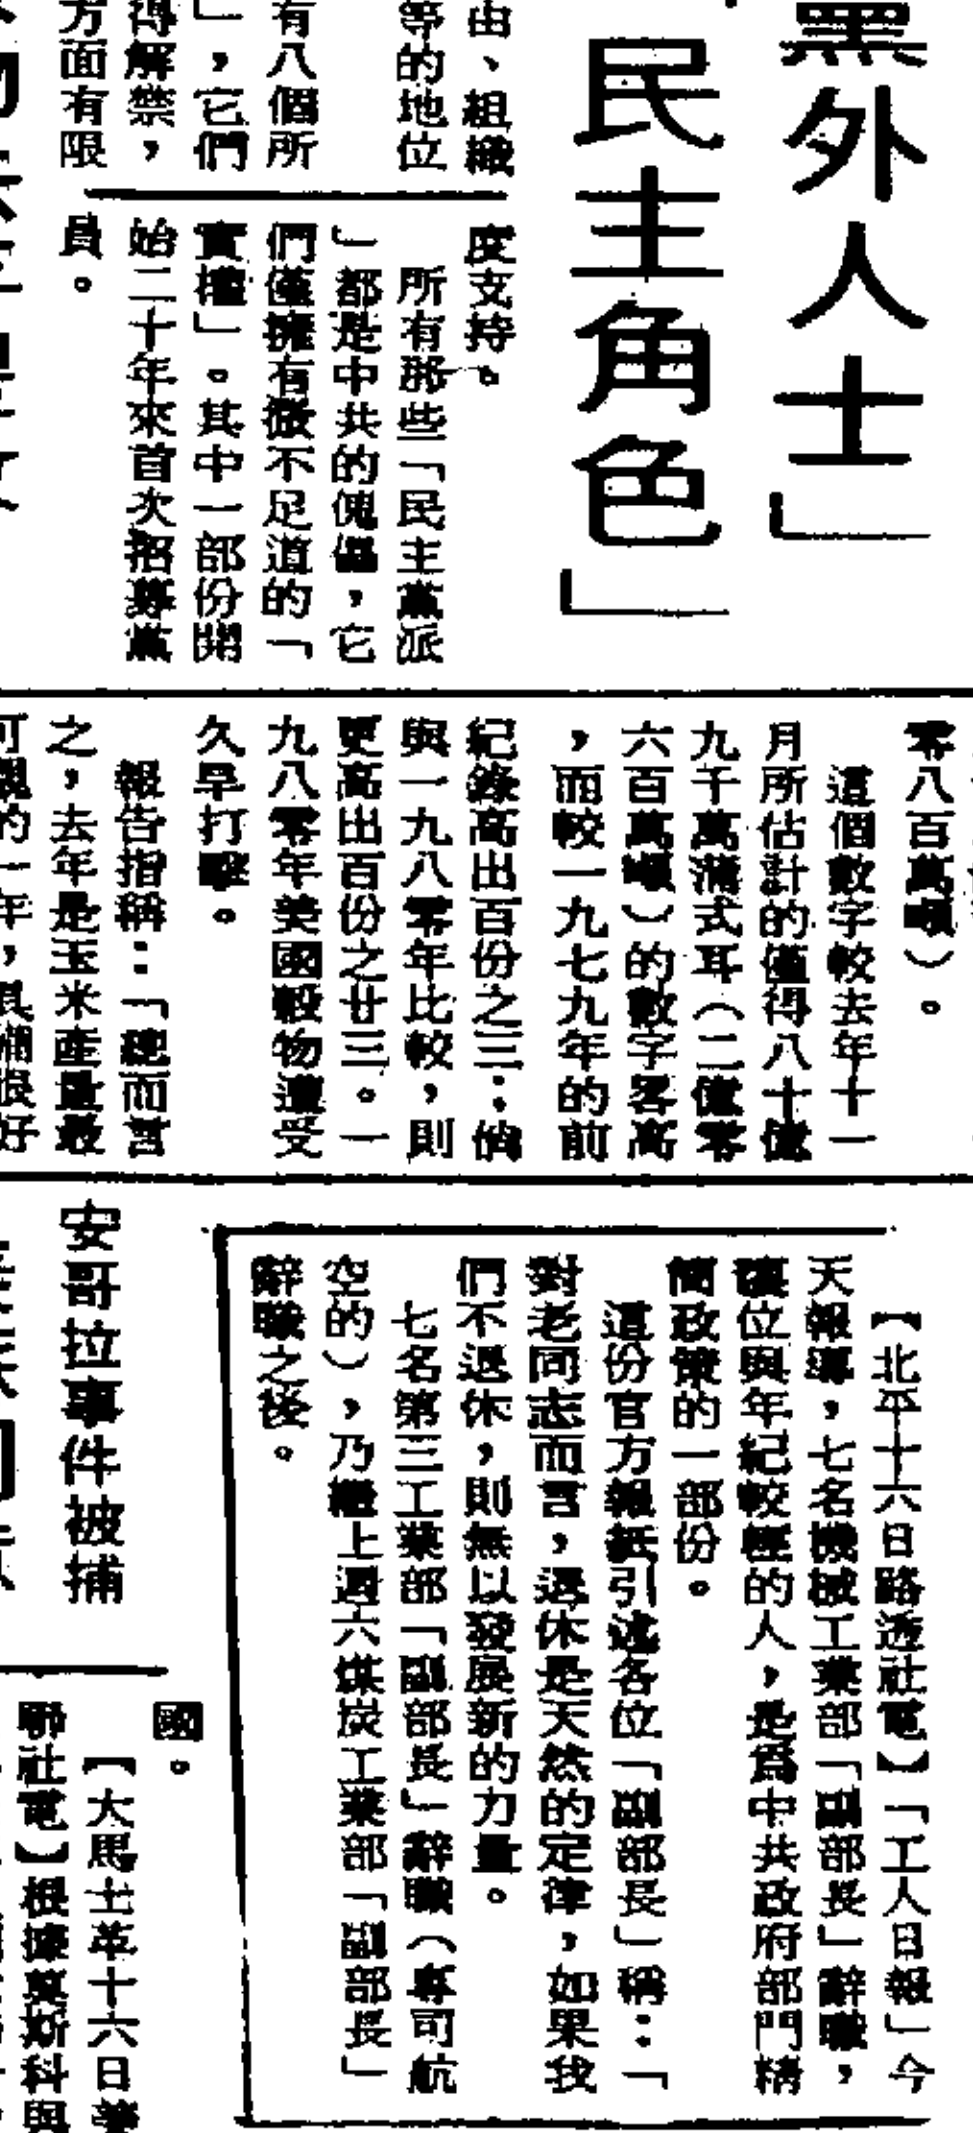 黨外人士」
民主角色」
由、組織
等的地位
有八個所
」，它們
得解禁，
方面有限
度支持。
所有那些「民主黨派
」都是中共的傀儡，它
們僅擁有微不足道的「
實權」。其中一部份開
始二十年來首次招募黨
員。
零八百萬噸）。
這個數字較去年十一
月所估計的僅得八十億
九千萬蒲式耳（二億零
六百萬噸）的數字畧高
，而較一九七九年的前
紀錄高出百份之三；倘
與一九八零年比較，則
更高出百份之廿三。一
九八零年美國穀物遭受
久旱打擊。
報告指稱：「總而言
之，去年是玉米產量最
可觀的一年，其補很好
【北平十六日路透社電】「工人日報」今
天報導，七名機械工業部「副部長」辭職，
讓位與年紀較輕的人，是爲中共政府部門精
簡政策的一部份。
這份官方報紙引述各位「副部長」稱：「
對老同志而言，退休是天然的定律，如果我
們不退休，則無以發展新的力量。
七名第三工業部「副部長」辭職（專司航
空的），乃繼上週六煤炭工業部「副部長」
辭職之後。
安哥拉事件被捕
國。
【大馬士革十六日
聯社電】根據莫斯科與